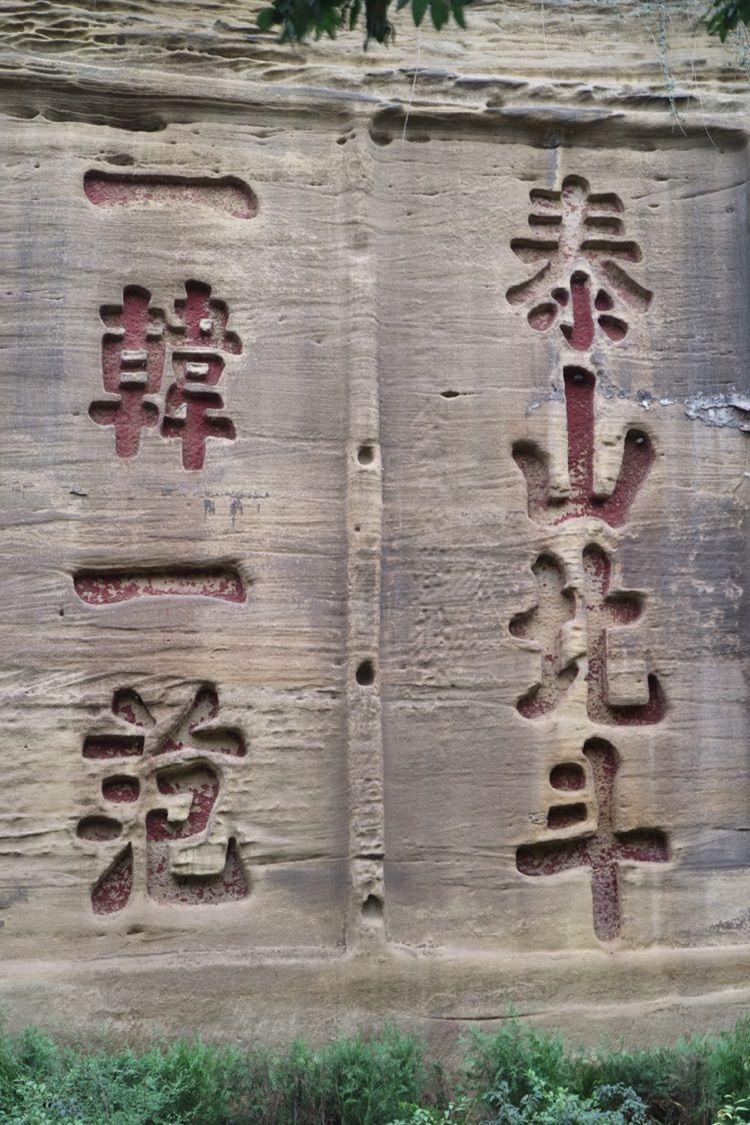 泰山北斗
一韓一范